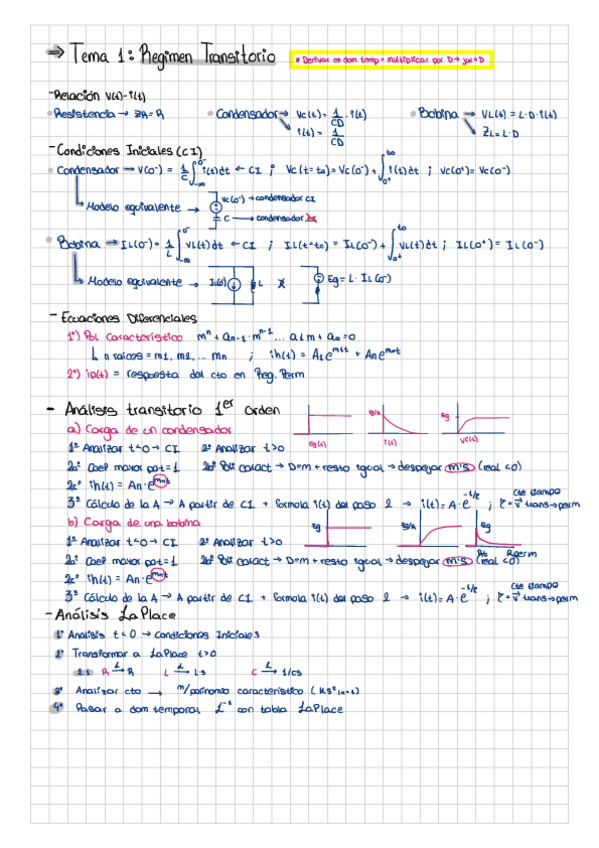 ⇒ Tema 1: Regimen Transitorio
* Derivar en dom temp = multiplicar por D → jω = D
- Relación V(t)-i(t)
Resistencia → ZR = R
Condensador → Vc(t) = 1/CD · i(t)
i(t) = 1/CD
Bobina → VL(t) = L·D·i(t)
ZL = L·D
- Condiciones Iniciales (CI)
Condensador → V(0⁻) = 1/C ∫_{-∞}^{0⁻} i(t)dt ← CI ; Vc(t=to) = Vc(0⁻) + ∫_{0⁺}^{to} i(t)dt ; Vc(0⁺) = Vc(0⁻)
Modelo equivalente →
Vc(0⁻) → condensador CI
C → condensador
Bobina → IL(0⁻) = 1/L ∫_{-∞}^{0⁻} VL(t)dt ← CI ; IL(t=to) = IL(0⁻) + ∫_{0⁺}^{to} VL(t)dt ; IL(0⁺) = IL(0⁻)
Modelo equivalente →
L
Eg = L · IL(0⁻)
- Ecuaciones Diferenciales
1º) Pol Característico mⁿ + an-1 · mⁿ⁻¹ ... a1m + a0 = 0
n raíces = m1, m2, ... mn ; ih(t) = A1e^{m1t} + Ane^{mnt}
2º) ip(t) = respuesta del cto en Reg. Perm
- Análisis transitorio 1er Orden
a) Carga de un condensador
Eg
Eg/R
Eg
Eg(t)
i(t)
Vc(t)
1º Analizar t<0 → CI 2º Analizar t>0
2a' Coef mayor pot = 1 2b' Pol caract → D=m + resto igual → despejar m's (real <0)
2c' ih(t) = An·e^{mnt}
3º Cálculo de la A → A partir de CI + formula i(t) del paso 2 → i(t) = A·e^{-t/τ} ;
Cte tiempo
trans → perm
b) Carga de una bobina
Eg
Eg/R
Eg
1º Analizar t<0 → CI 2º Analizar t>0
2a' Coef mayor pot = 1 2b' Pol caract → D=m + resto igual → despejar m's (real <0)
Rperm
2c' ih(t) = An·e^{mnt}
3º Cálculo de la A → A partir de CI + formula i(t) del paso 2 → i(t) = A·e^{-t/τ} ;
Cte tiempo
trans → perm
- Análisis LaPlace
1º Analisis t<0 → Condiciones Iniciales
2º Transformar a LaPlace t>0
2.1 R →ᴸ R L →ᴸ Ls C →ᴸ 1/Cs
3º Analizar cto → m/polinomio característico
4º Pasar a dom temporal L⁻¹ con tabla LaPlace